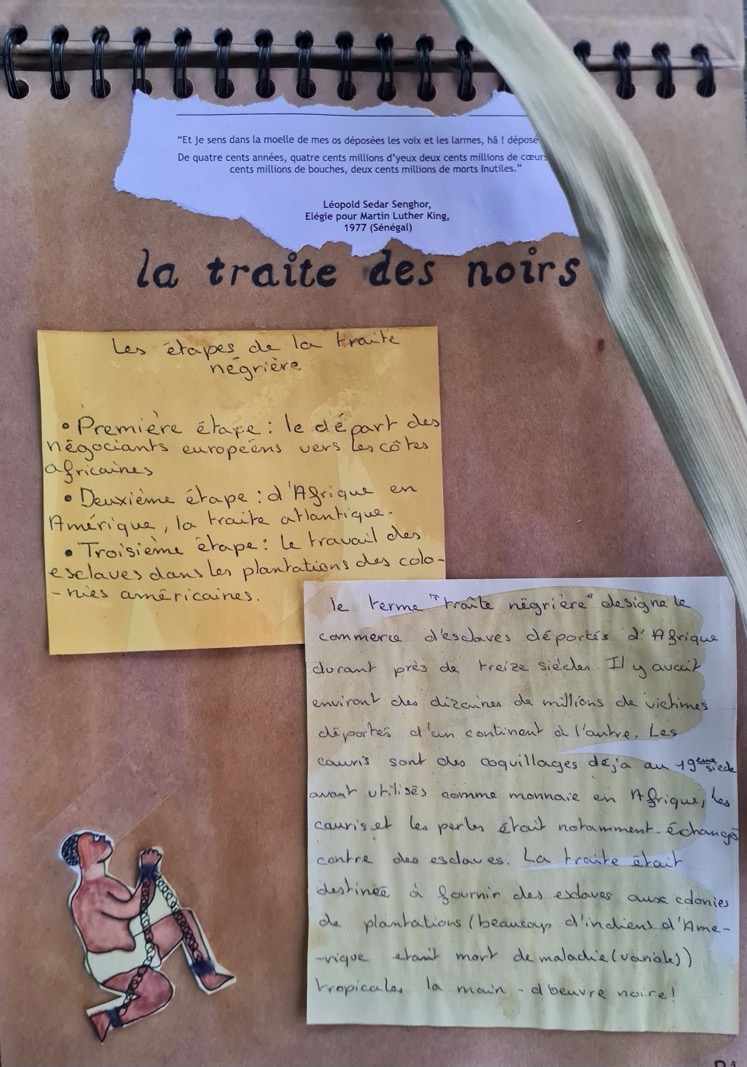 “Et je sens dans la moelle de mes os déposées les voix et les larmes, hâ ! déposé
De quatre cents années, quatre cents millions d’yeux deux cents millions de cœurs
cents millions de bouches, deux cents millions de morts Inutiles.”
Léopold Sedar Senghor,
Elégie pour Martin Luther King,
1977 (Sénégal)
la traite des noirs
Les étapes de la traite
négrière
• Première étape : le départ des
négociants européens vers les côtes
africaines
• Deuxième étape : d'Afrique en
Amérique, la traite atlantique.
• Troisième étape : le travail des
esclaves dans les plantations des colo-
-nies américaines.
le terme "traîte négrière" designe le
commerce d'esclaves déportés d'Afrique
durant près de treize siècles. Il y avait
environt des dizaines de millions de victimes
déportés d'un continent à l'autre. Les
cauris sont des coquillages déja au 19eme siècle
avant utilisés comme monnaie en Afrique, les
cauris et les perles était notamment échangés
contre des esclaves. La traite était
destinée à fournir des esclaves aux colonies
de plantations (beaucoup d'indiens d'Ame-
-rique etant mort de maladie (variole))
tropicales la main-d'œuvre noire!